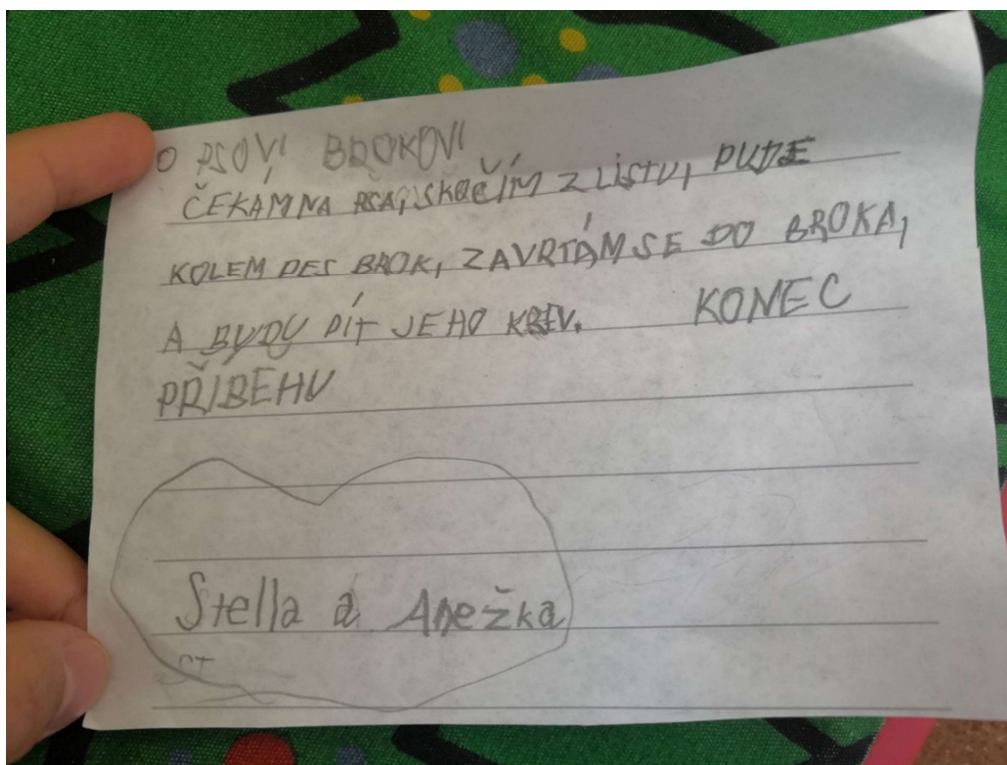 O PSOVI BROKOVI
ČEKÁM NA PSA, SKOČÍM Z LISTU, PUDE
KOLEM PES BROK, ZAVRTÁM SE DO BROKA,
A BUDU PÍT JEHO KREV. KONEC
PŘÍBĚHU
Stella a Anežka